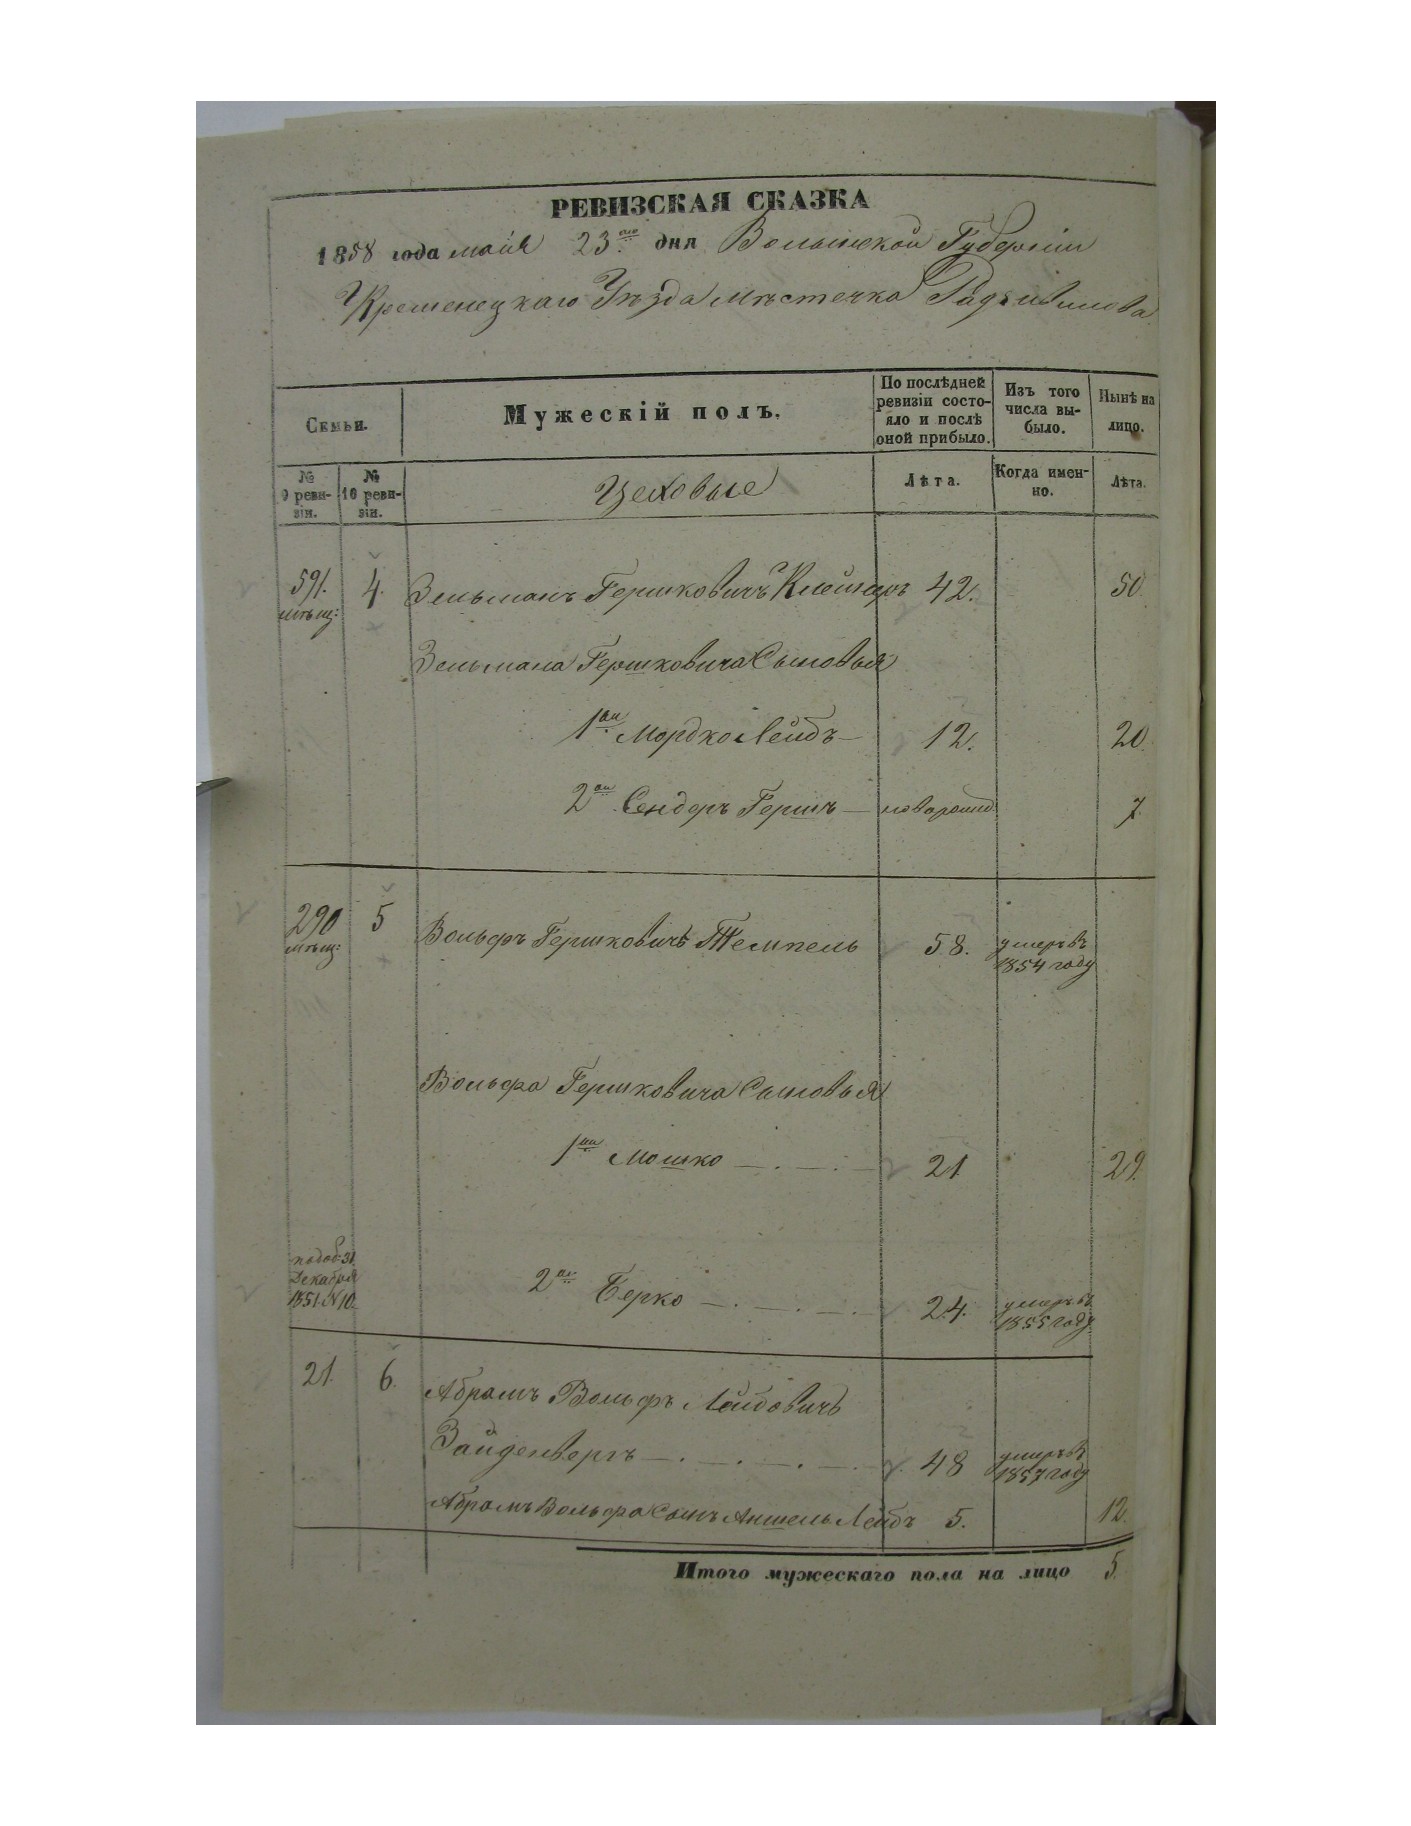 РЕВИЗСКАЯ СКАЗКА
1858 года майя 23го дня Волынской Губерніи
Кременецкаго Уѣзда мѣстечка Радзивилова
Семьи.
Мужескій полъ.
По послѣдней ревизіи состояло и послѣ оной прибыло.
Изъ того числа выбыло.
Нынѣ на лицо.
№ 9 ревизіи.
№ 10 ревизіи.
Цеховые
Лѣта.
Когда именно.
Лѣта.
591. мѣщ: 4. Зельманъ Гершковичъ 42. 50
Зельмана Гершковича Сыновья
1ый Мордко Лейбъ — 12. 20.
2ой Сендеръ Гершъ — новорожд. 7.
290 мѣщ: 5 Вольфъ Гершковичъ Темпель 58. умеръ въ 1854 году
Вольфа Гершковича Сыновья
1ый Мошко — . — . — 21 29.
Декабря 1851. № 10. 2ой Берко — . — . — . — 24. умеръ въ 1855 году
21. 6. Абрамъ Вольфъ Лейбовичъ
Зайденвергъ — . — . — . — 48 умеръ въ 1857 году
Абрамъ Вольфа Сынъ Аншель Лейбъ 5. 12.
Итого мужескаго пола на лицо 5.